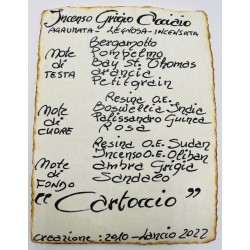 Incenso Grigio Acciaio
AGRUMATA - LEGNOSA - INCENSATA
Bergamotto
Note di TESTA
Pompelmo
Bay St. Thomas
arancia
Petitgrain
Resina O.E.
Note di CUORE
Boswellia India
Palissandro Guinea
Rosa
Resina O.E. Sudan
Note di FONDO
Incenso O.E. Oliban
ambra Grigia
Sandalo
“Cartoccio”
creazione: 2010 - lancio 2022